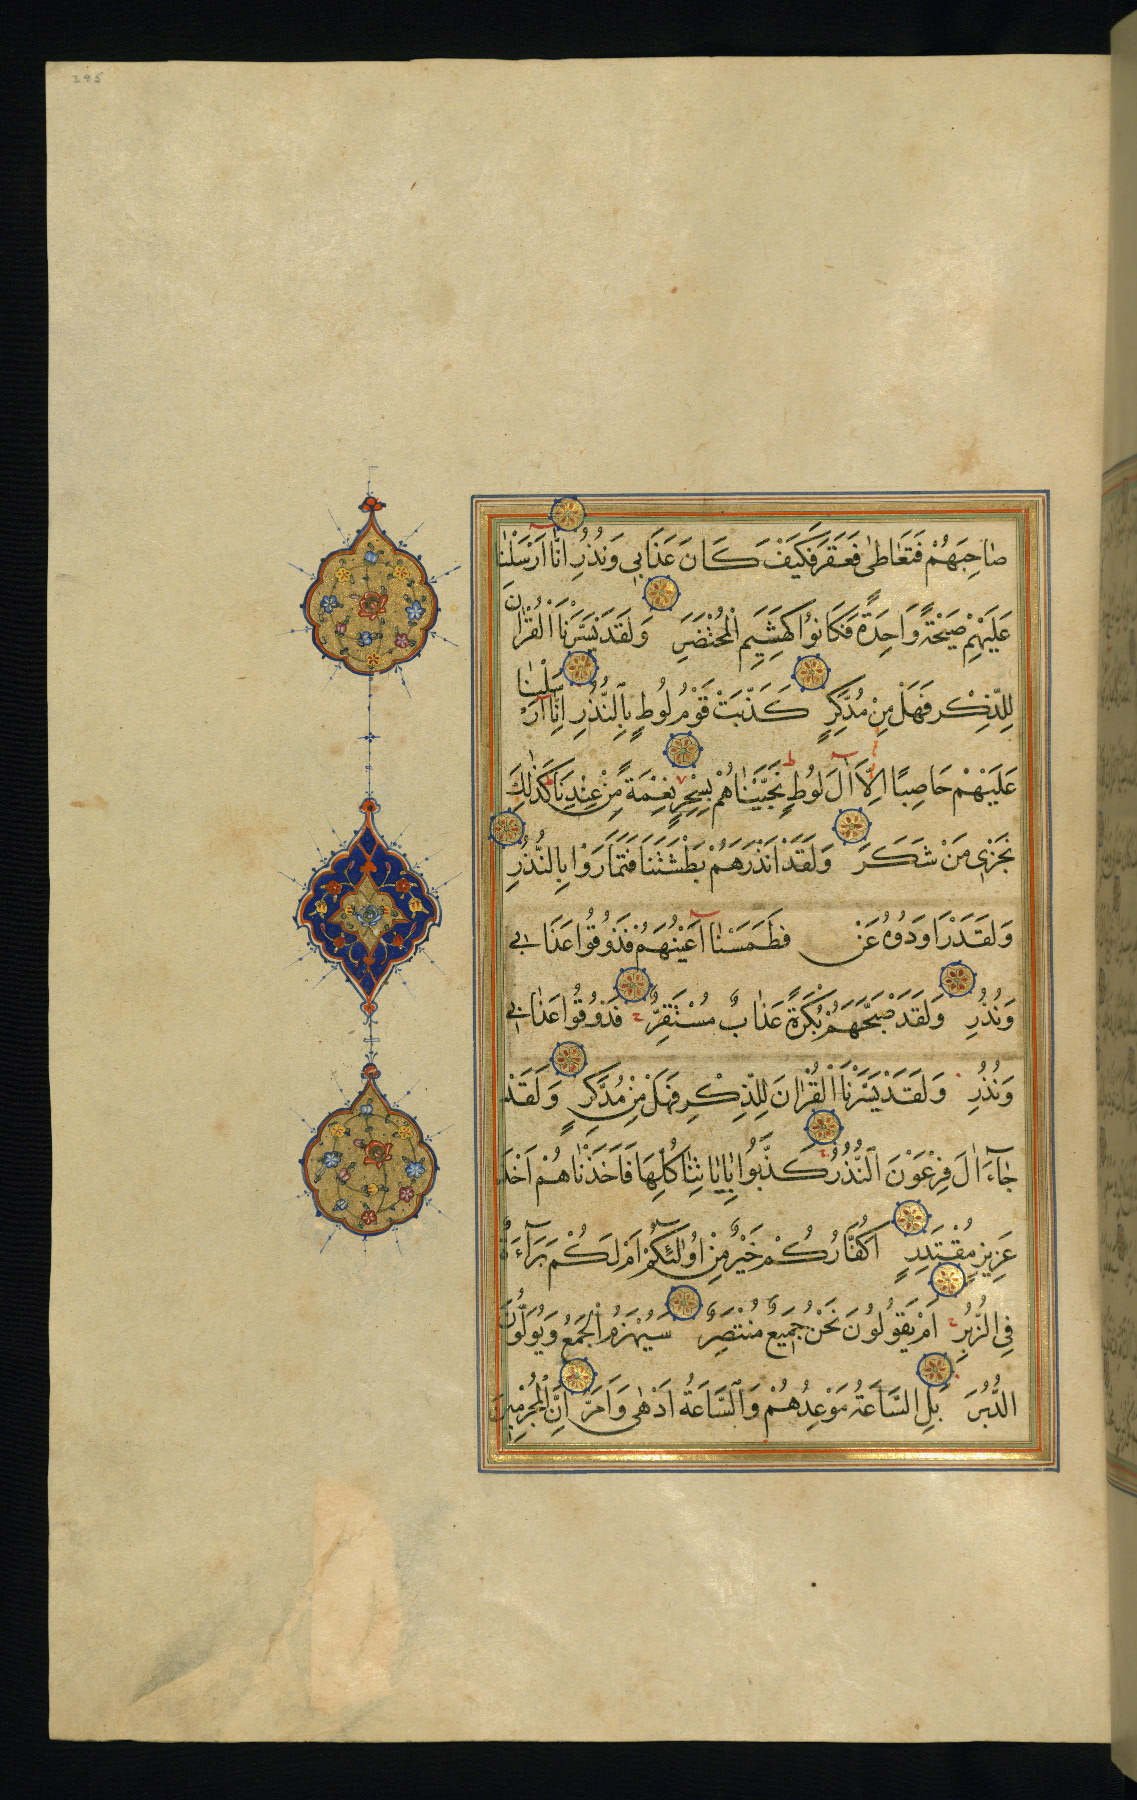 295
صَاحِبَهُمْ فَتَعَاطٰى فَعَقَرَ فَكَيْفَ كَانَ عَذَابِي وَنُذُرِ اِنَّا اَرْسَلْنَا
عَلَيْهِمْ صَيْحَةً وَاحِدَةً فَكَانُوا كَهَشِيمِ الْمُحْتَضَرِ وَلَقَدْ يَسَّرْنَا الْقُرْاٰنَ
لِلذِّكْرِ فَهَلْ مِنْ مُدَّكِرٍ كَذَّبَتْ قَوْمُ لُوطٍ بِالنُّذُرِ اِنَّا اَرْسَلْنَا
عَلَيْهِمْ حَاصِبًا اِلَّا اٰلَ لُوطٍ نَجَّيْنَاهُمْ بِسَحَرٍ نِعْمَةً مِنْ عِنْدِنَا كَذٰلِكَ
نَجْزِي مَنْ شَكَرَ وَلَقَدْ اَنْذَرَهُمْ بَطْشَتَنَا فَتَمَارَوْا بِالنُّذُرِ
وَلَقَدْ رَاوَدُوهُ عَنْ فَطَمَسْنَا اَعْيُنَهُمْ فَذُوقُوا عَذَابِي
وَنُذُرِ وَلَقَدْ صَبَّحَهُمْ بُكْرَةً عَذَابٌ مُسْتَقِرٌّ فَذُوقُوا عَذَابِي
وَنُذُرِ وَلَقَدْ يَسَّرْنَا الْقُرْاٰنَ لِلذِّكْرِ فَهَلْ مِنْ مُدَّكِرٍ وَلَقَدْ
جَآءَ اٰلَ فِرْعَوْنَ النُّذُرُ كَذَّبُوا بِاٰيَاتِنَا كُلِّهَا فَاَخَذْنَاهُمْ اَخْذَ
عَزِيزٍ مُقْتَدِرٍ اَكُفَّارُكُمْ خَيْرٌ مِنْ اُولٰٓئِكُمْ اَمْ لَكُمْ بَرَآءَةٌ
فِي الزُّبُرِ اَمْ يَقُولُونَ نَحْنُ جَمِيعٌ مُنْتَصِرٌ سَيُهْزَمُ الْجَمْعُ وَيُوَلُّونَ
الدُّبُرَ بَلِ السَّاعَةُ مَوْعِدُهُمْ وَالسَّاعَةُ اَدْهٰى وَاَمَرُّ اِنَّ الْمُجْرِمِينَ